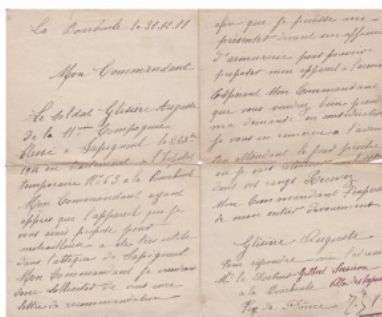 La Bourboule le 31.12.11
Mon Commandant
Le Soldat Glisière Auguste
de la 11me Compagnie
Blessé à Sapigneul le
1914 en traitement à l'hôpital
temporaire No 63 à la Bourboule
Mon Commandant ayant
appris que l'appareil que je
vous avais proposé pour
mitrailleur a été très utile
dans l'attaque de Sapigneul
Mon Commandant je viendrais
donc solliciter de vous une
lettre de recommandation
afin que je puisse me
présenter devant un officier
d'armurerie pour pouvoir
proposer mon appareil à l'armée
Espérant Mon Commandant
que vous voudrez bien prendre
ma demande en considération
je vous en remercie à l'avance
en attendant le jour proche
où je vais
dans vos rangs Recevez
Mon Commandant l'expression
de mon entier dévouement
Glisière Auguste
vous répondre
Mr le Docteur Gilbert
à la Bourboule Villa des
Puy de Dôme